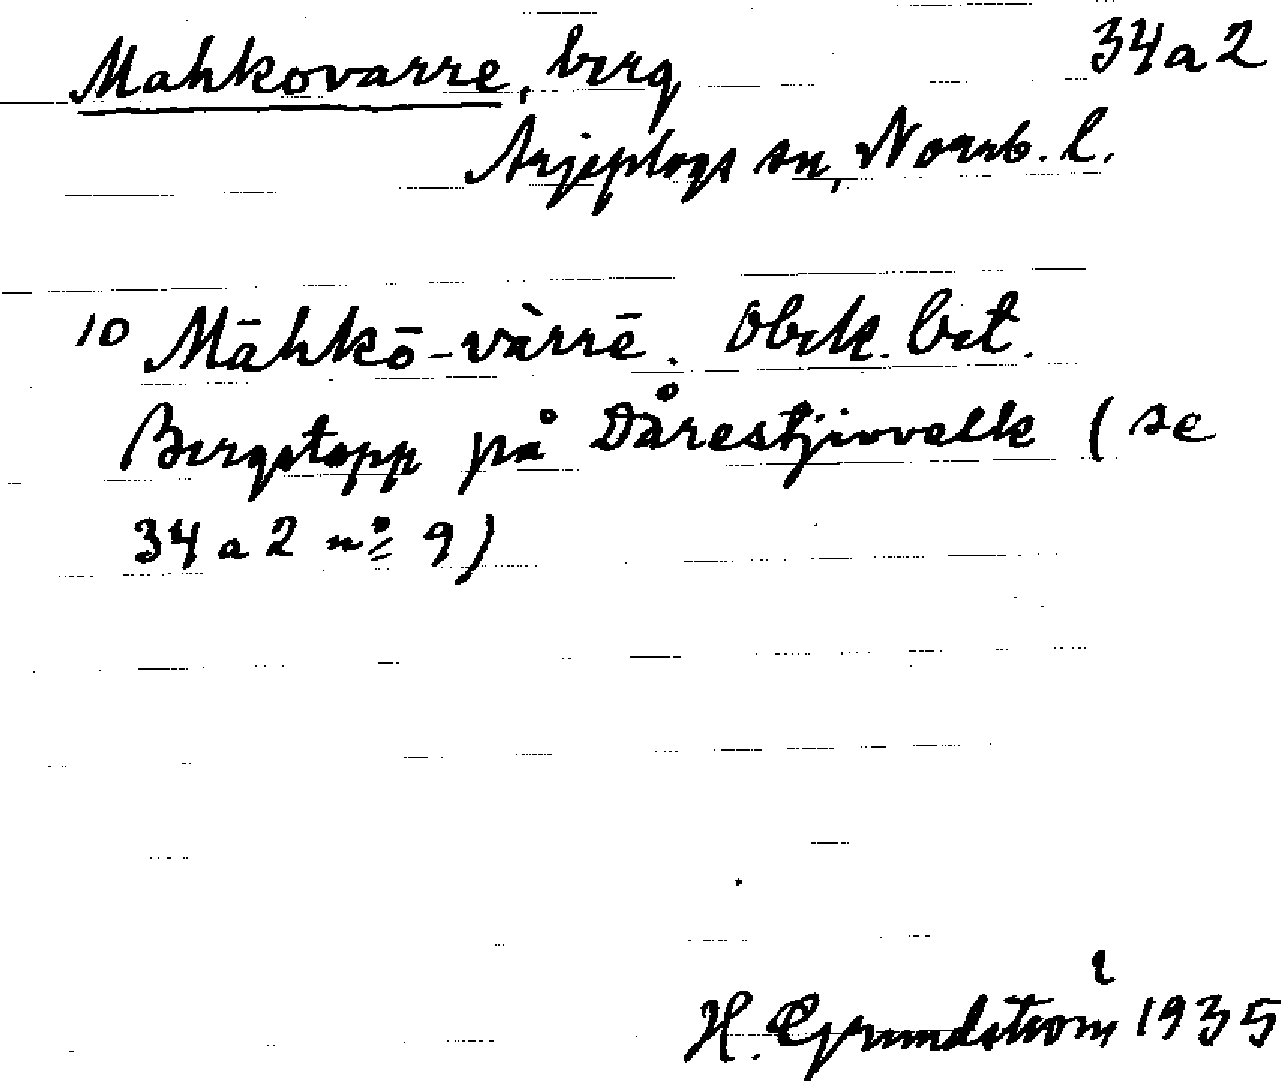 Mahkovarre, berg 34a2
Arjeplogs sn, Norrb. l.
10 Māhkō-vàrrē. Obek. bet.
Bergstopp på Dårestjivvalk (se
34 a 2 nº 9)
H. Grundström 1935